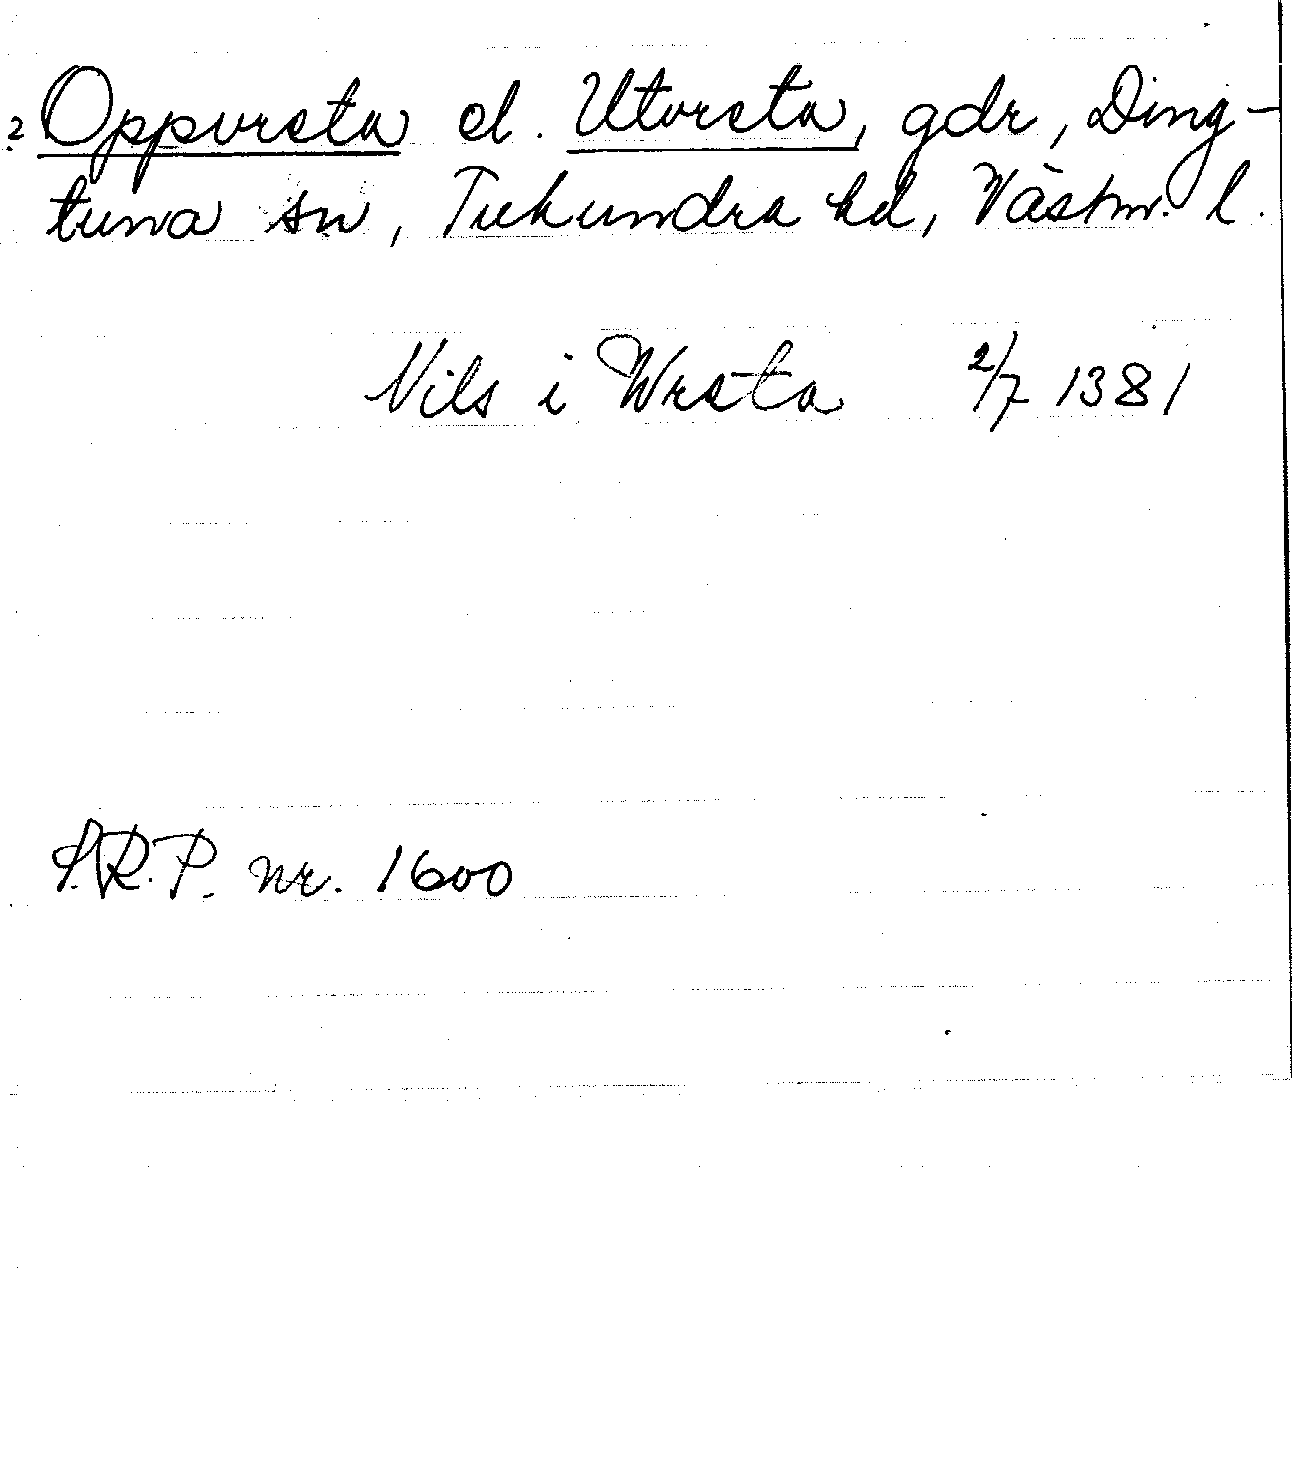 ? Oppvrsta el. Utvrsta, gdr, Ding-
tuna sn, Tuhundra hd, Västm. l.
Nils i Wrsta 2/7 1381
S.R.P. nr. 1600